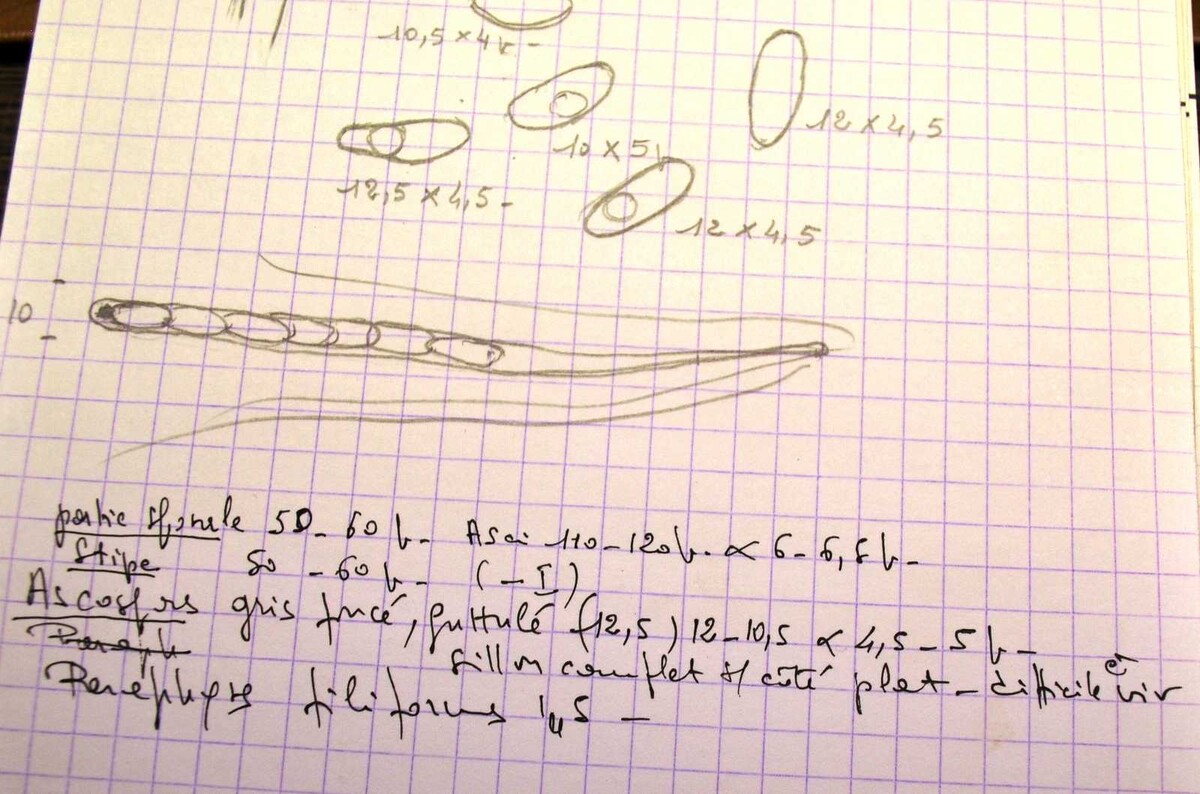 10,5 × 4 µ -
12 × 4,5
10 × 5 µ
12,5 × 4,5 -
12 × 4,5
10
partie sporale 50 - 60 µ - Asci 110 - 120 µ × 6 - 6,5 µ -
Stipe 50 - 60 µ - (- I)
Ascosprs gris foncé, guttulé (12,5) 12 - 10,5 × 4,5 - 5 µ -
sillon complet s/ côté plat - difficile à voir
Paraphyses filiformes 1,5 -